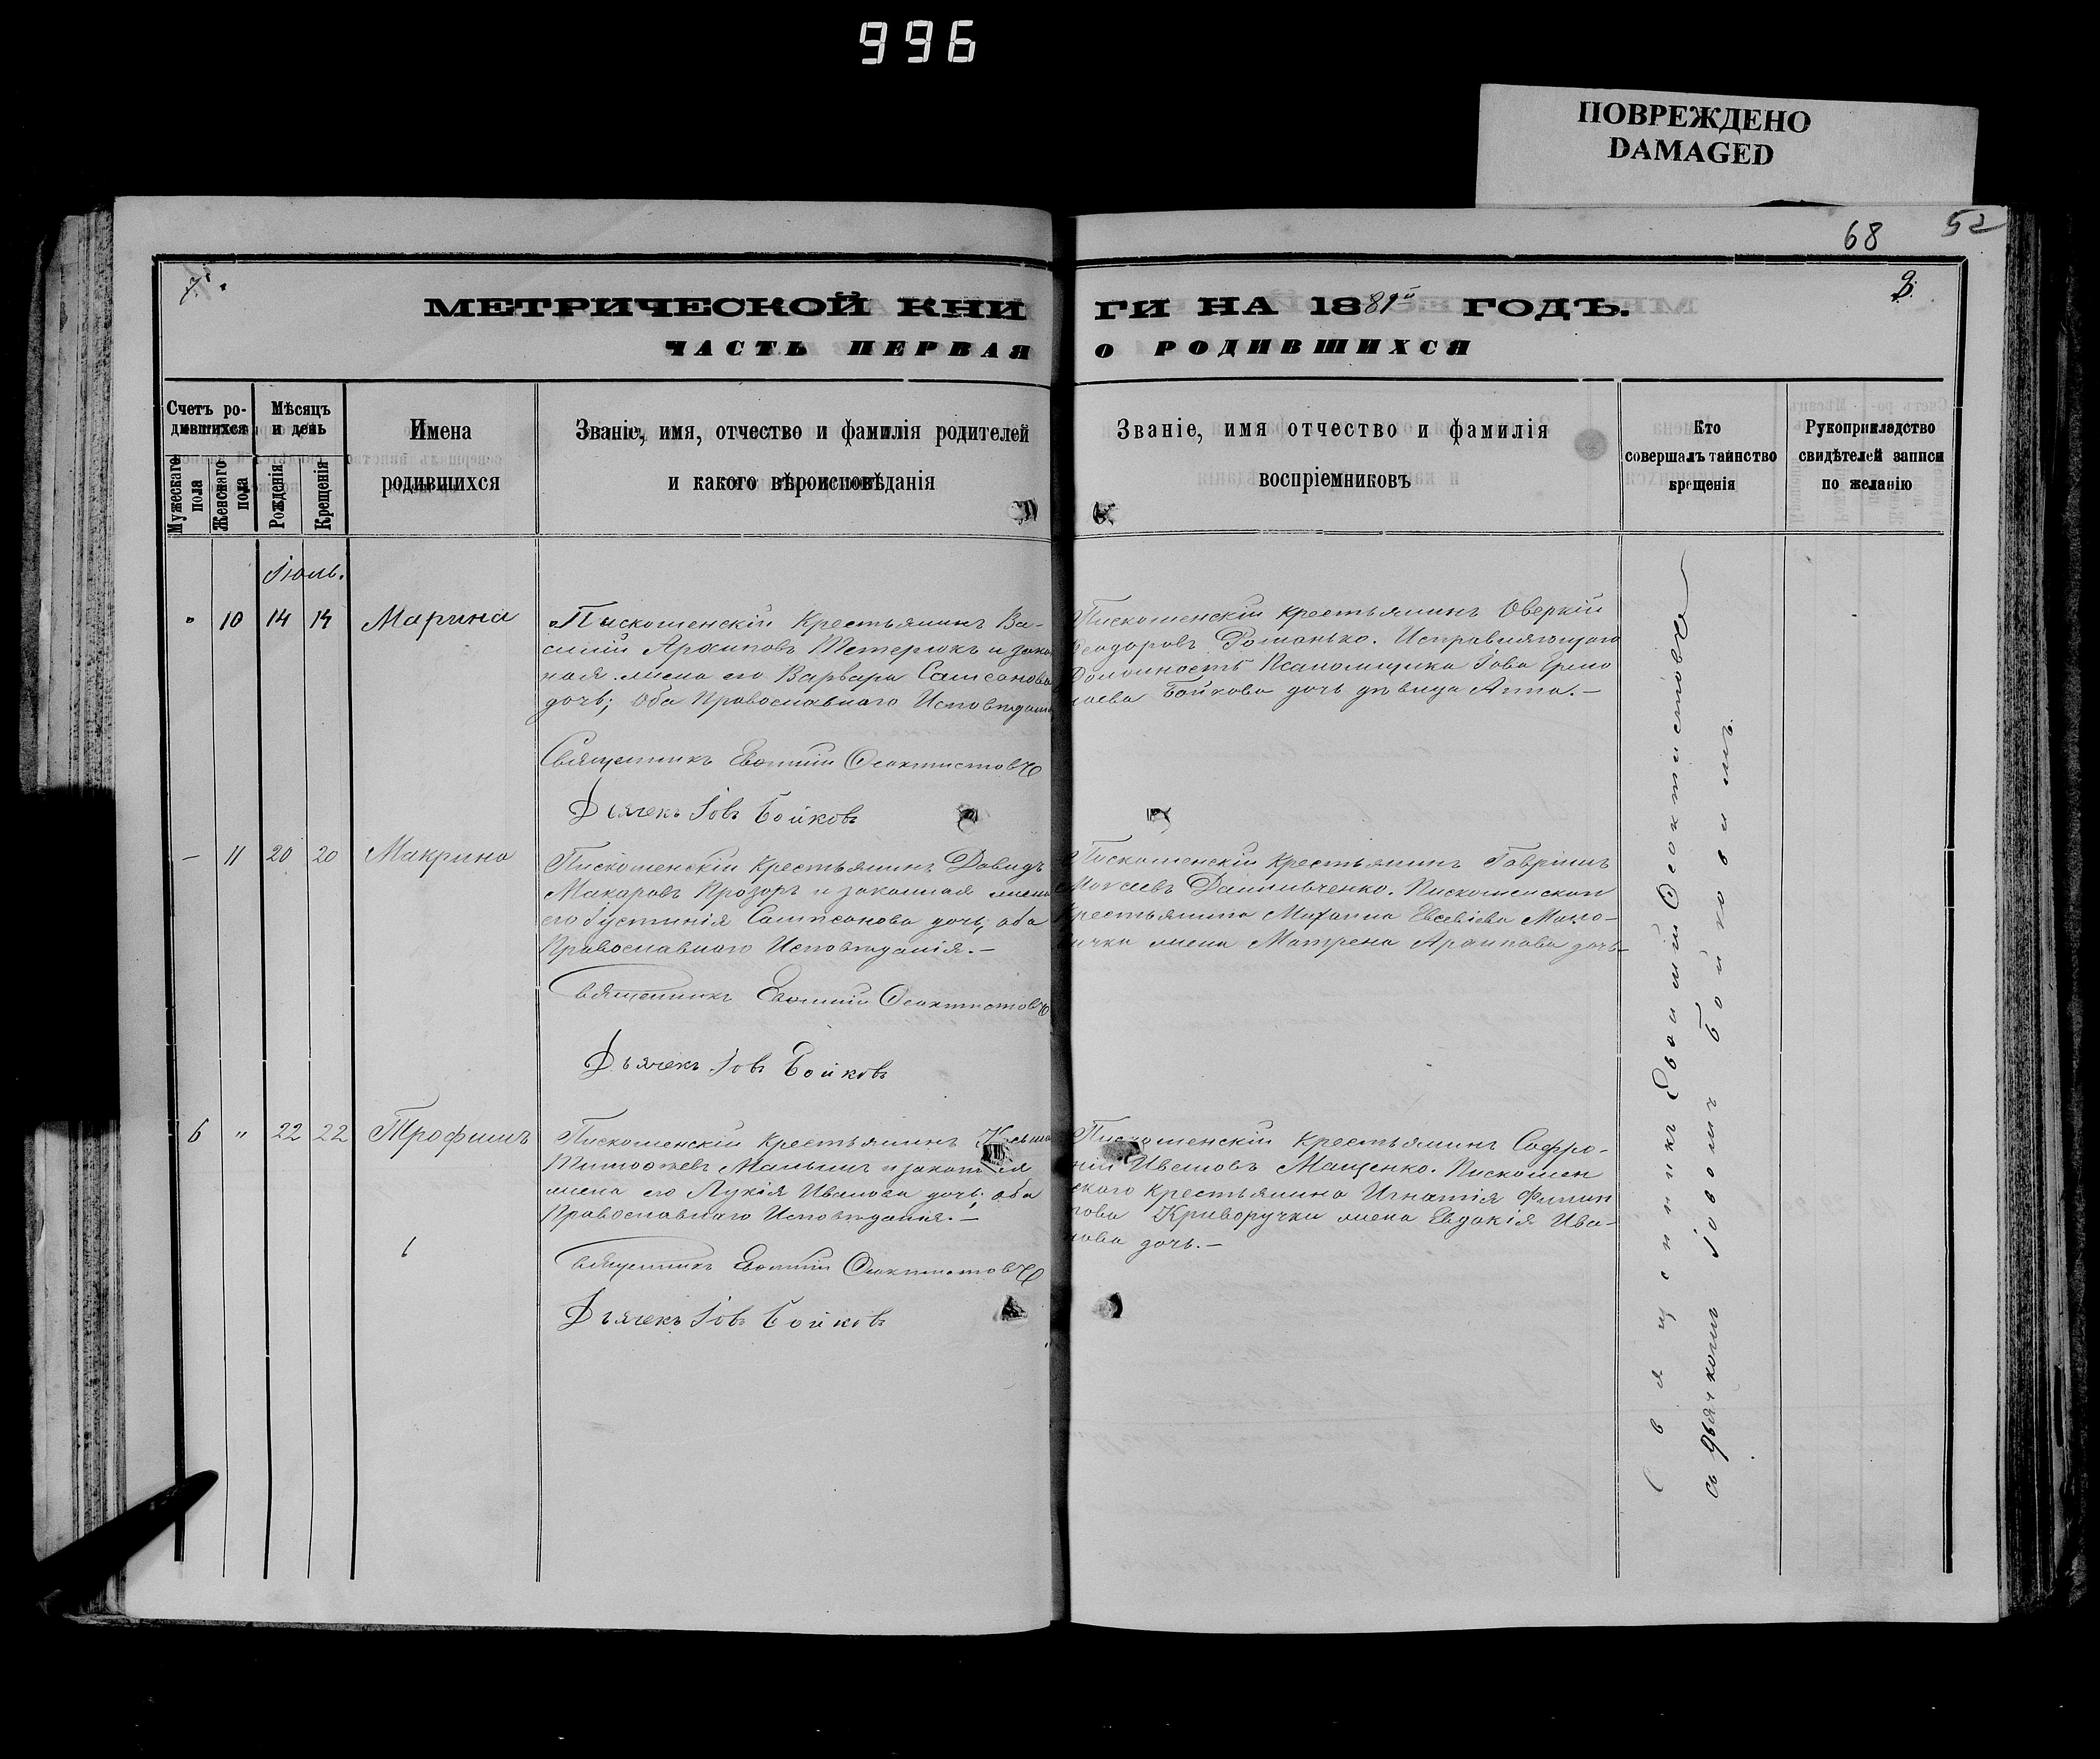 996
ПОВРЕЖДЕНО
DAMAGED
68
52
МЕТРИЧЕСКОЙ КНИ
ГИ НА 1881й ГОДЪ.
ЧАСТЬ ПЕРВАЯ
О РОДИВШИХСЯ
Счетъ ро-
дившихся
Мужескаго
пола
Женскаго
пола
Мѣсяцъ
и день
Рожденія
Крещенія
Имена
родившихся
Званіе, имя, отчество и фамилія родителей
и какого вѣроисповѣданія
Званіе, имя отчество и фамилія
воспріемниковъ
Кто
совершалъ таинство
крещенія
Рукоприкладство
свидѣтелей записи
по желанію
Іюль.
" 10 14 14 Марина
Пискошенскій Крестьянинъ Ва-
силій Архиповъ Тетерюкъ и закон
ная жена его Варвара Сампсонова
дочь; оба Православнаго Исповѣдані
Священникъ Евѳимій Ѳеоктистовъ
Дьячекъ Іовъ Бойковъ
Пискошенскій крестьянинъ Оверкій
Ѳеодоровъ Романько. Исправляющаго
Должность Псаломщика Іова
Бойкова дочь дѣвица Анна.-
— 11 20 20 Макрина
Пискошенскій крестьянинъ Давидъ
Макаровъ Прозоръ и законная жена
его Іустинія Сампсонова дочь; оба
Православнаго Исповѣданія.-
Священникъ Евѳимій Ѳеоктистовъ
Дьячекъ Іовъ Бойковъ
Пискошенскій Крестьянинъ Гавріилъ
Моисеевъ Данильченко. Пискошенскаго
Крестьянина Михаила Евсевіева
жена Матрена Архипова дочь-
6 " 22 22 Трофимъ
Пискошенскій крестьянинъ Козьма
Тимоѳеевъ и законная
жена его Лукія Иванова дочь; оба
Православнаго Исповѣданія.-
Священникъ Евѳимій Ѳеоктистовъ
Дьячекъ Іовъ Бойковъ
Пискошенскій крестьянинъ Софро-
ній Ивановъ Мащенко. Пискошен
скаго Крестьянина Игнатія Филип
пова Криворучки жена Евдокія Ива-
нова дочь.-
Священникъ Евѳимій Ѳеоктистовъ
съ дьячкомъ Іовомъ Бойковимъ.